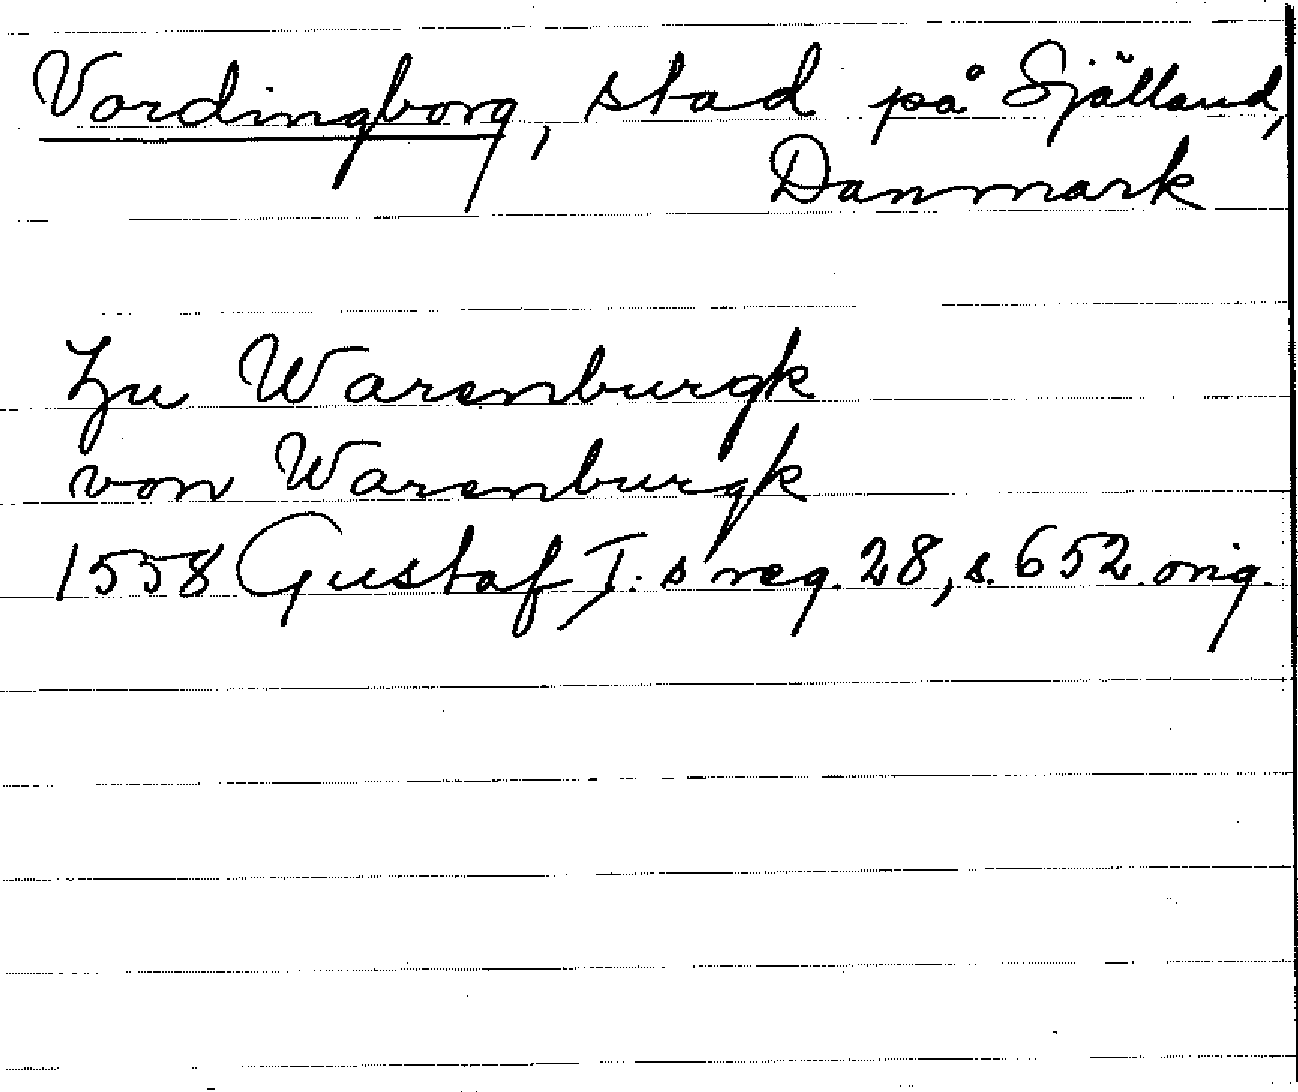 Vordingborg, stad på Själland,
Danmark
Zu Warenburgk
von Warenburgk
1558 Gustaf I:s reg. 28, s. 652 orig.